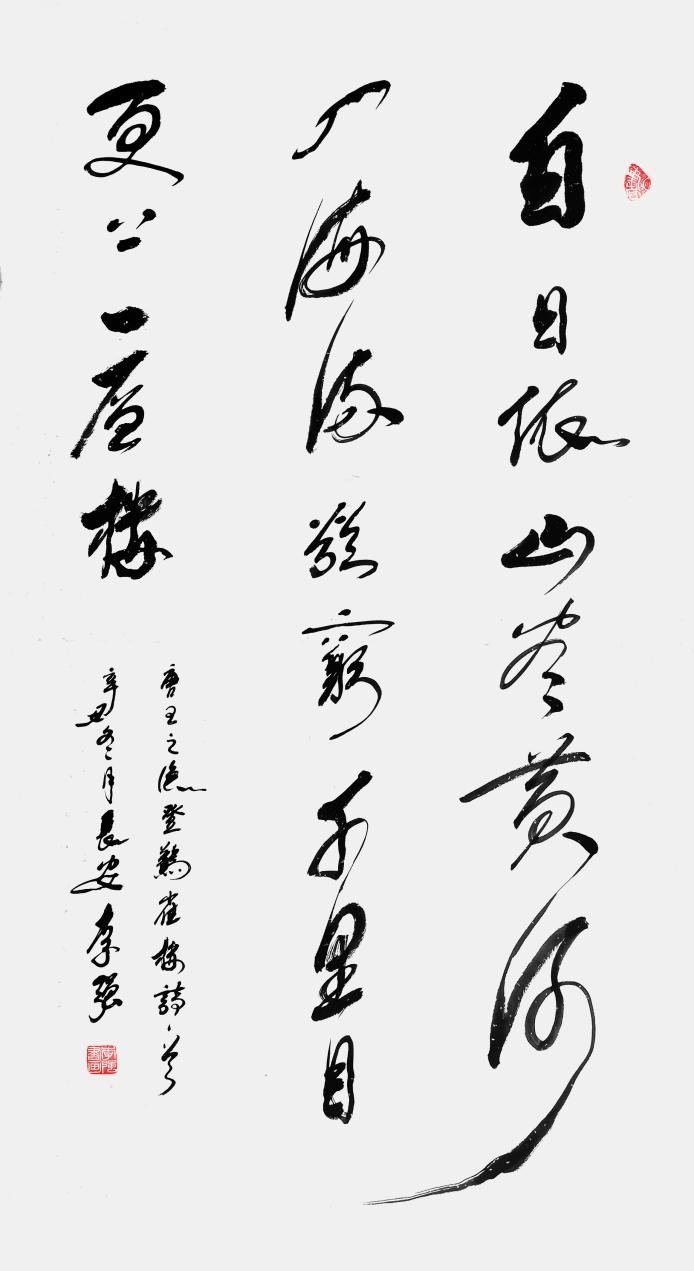 白日依山尽黄河
入海流欲窮千里目
更上一层楼
唐王之渙登鸛雀楼詩一首
辛丑冬月長安李强